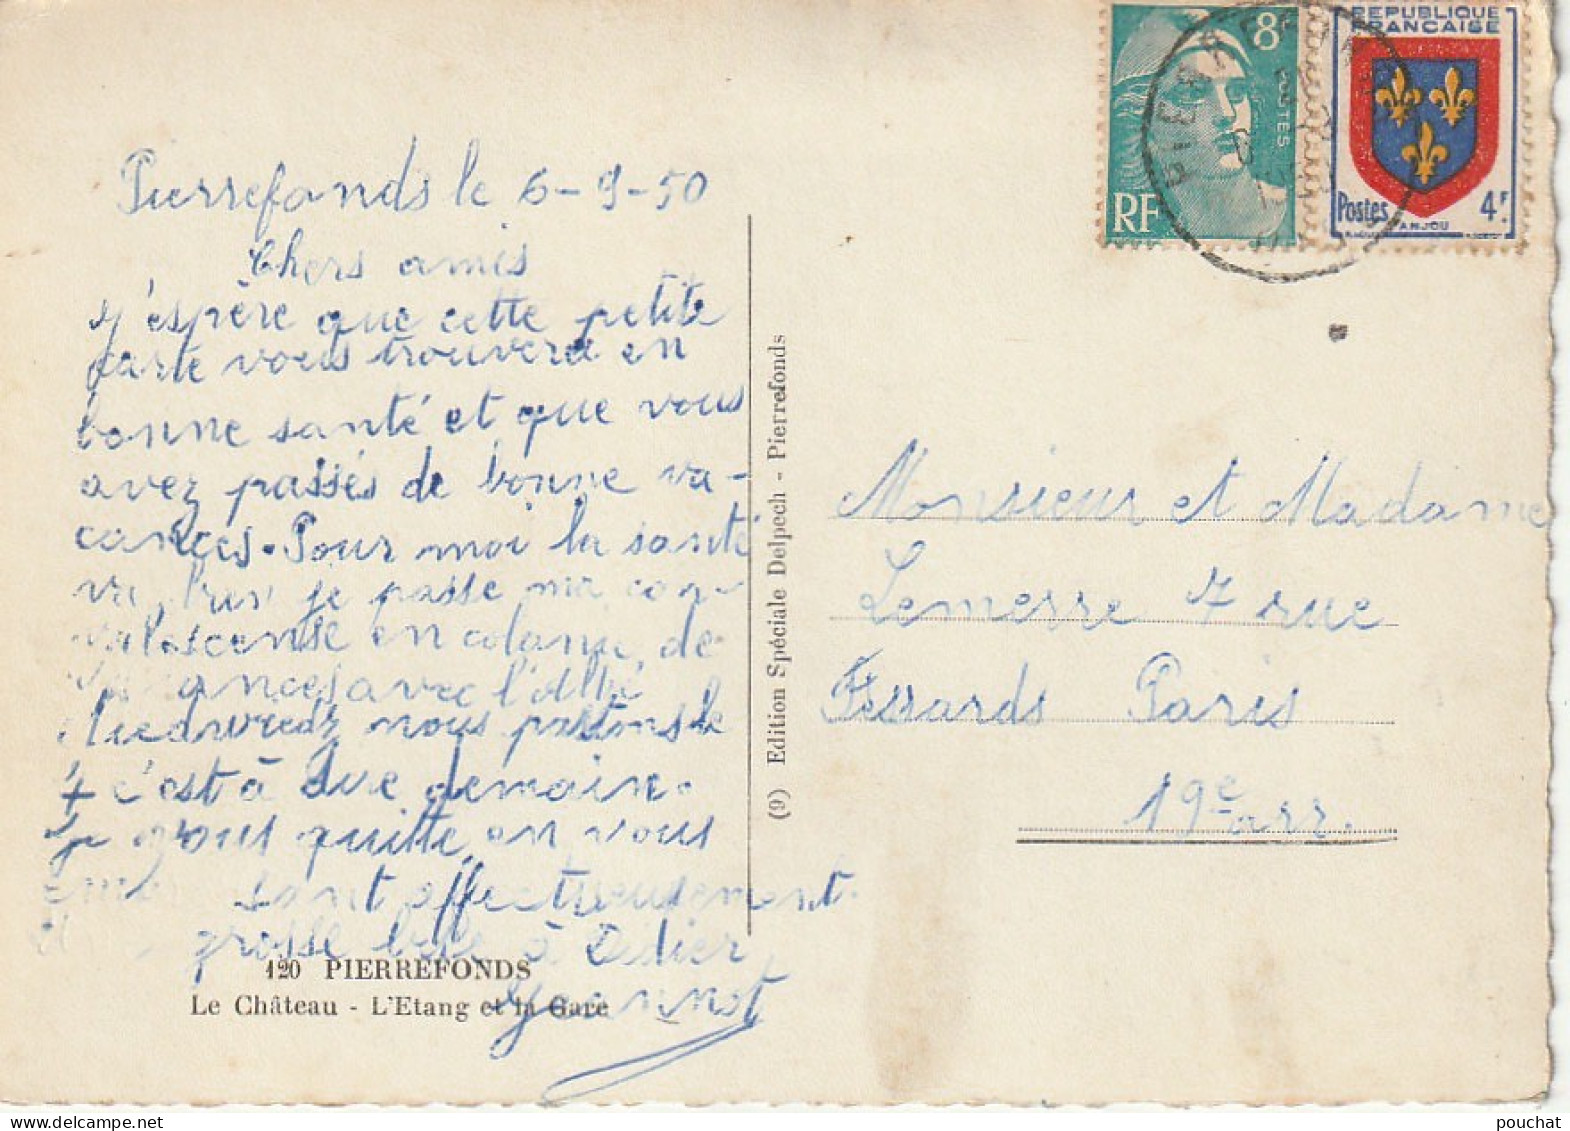 Pierrefonds le 6-9-50
Chers amis
J'espère que cette petite
carte vous trouvera en
bonne santé et que vous
avez passés de bonne va-
cances. Pour moi la santé
va, je passe ma con-
valescense en colonie de
vacances avec l'abbé
nous partons le
7 c'est à dire demain.
Je vous quitte en vous
embrassant affectueusement.
grosse bise à Didier
Jeannot
120 PIERREFONDS
Le Château - L'Etang et la Gare
(9) Edition Spéciale Delpech - Pierrefonds
8F
POSTES
RF
REPUBLIQUE
FRANCAISE
Postes 4F.
ANJOU
PIERREFONDS
Monsieur et Madame
Lemerre 7 rue
Fessards Paris
19e arr.
pouchat